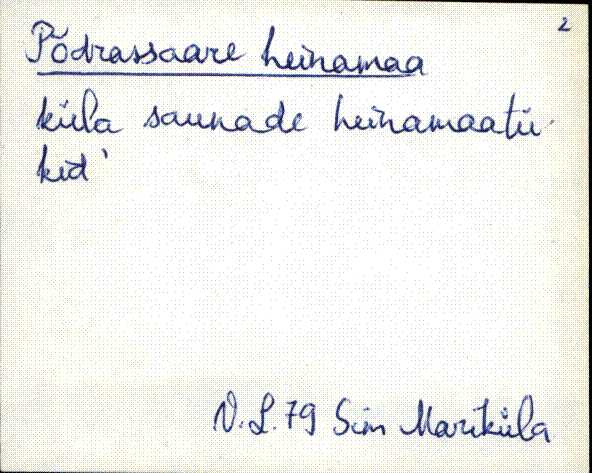 2
Põdrassaare heinamaa
küla saunade heinamaatü-
kid'
V.L.79 Sim Mariküla